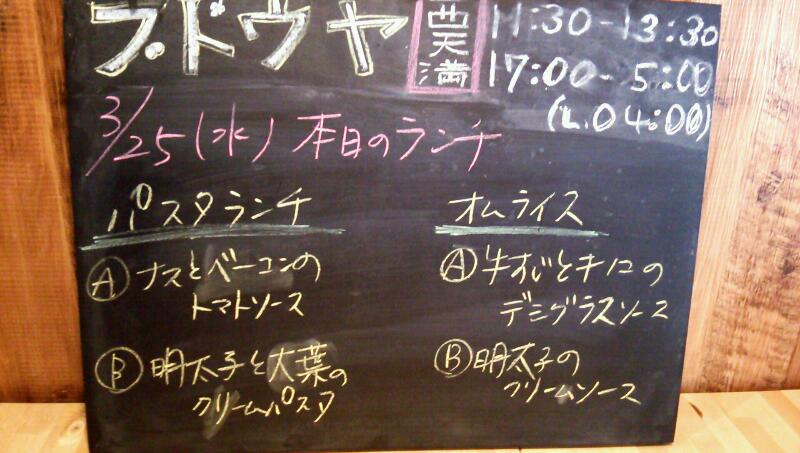 ブドウヤ 天満 11:30-13:30
17:00-5:00
(L.O 4:00)
3/25(水) 本日のランチ
パスタランチ
Ⓐ ナスとベーコンの
トマトソース
Ⓑ 明太子と大葉の
クリームパスタ
オムライス
Ⓐ 牛すじとキノコの
デミグラスソース
Ⓑ 明太子の
クリームソース